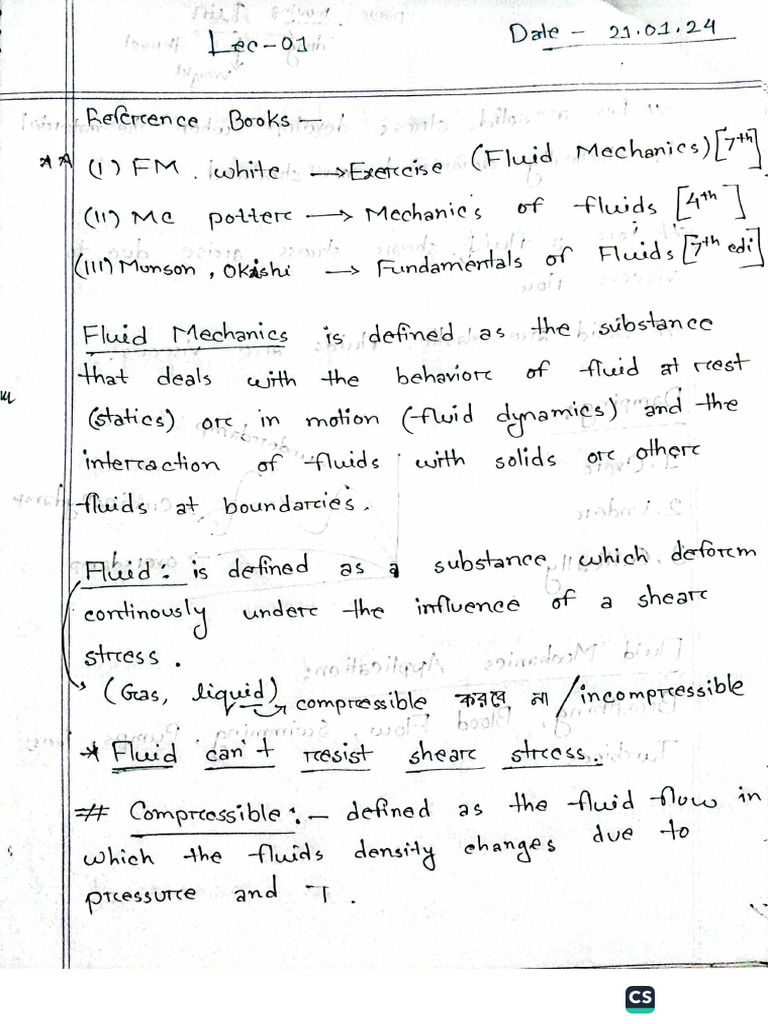 Lec-01
Date - 21.01.24
Reference Books -
** (I) FM. white → Exercise (Fluid Mechanics) [7th]
(II) MC potter → Mechanics of fluids [4th]
(III) Munson, Okishi → Fundamentals of Fluids [7th edi]
Fluid Mechanics is defined as the substance
that deals with the behavior of fluid at rest
(statics) or in motion (fluid dynamics) and the
interaction of fluids with solids or other
fluids at boundaries.
Fluid: is defined as a substance which deform
continously under the influence of a shear
stress.
(Gas, liquid) → compressible করবে না / incompressible
* Fluid can't resist shear stress.
# Compressible: - defined as the fluid flow in
which the fluids density changes due to
pressure and T.
CS